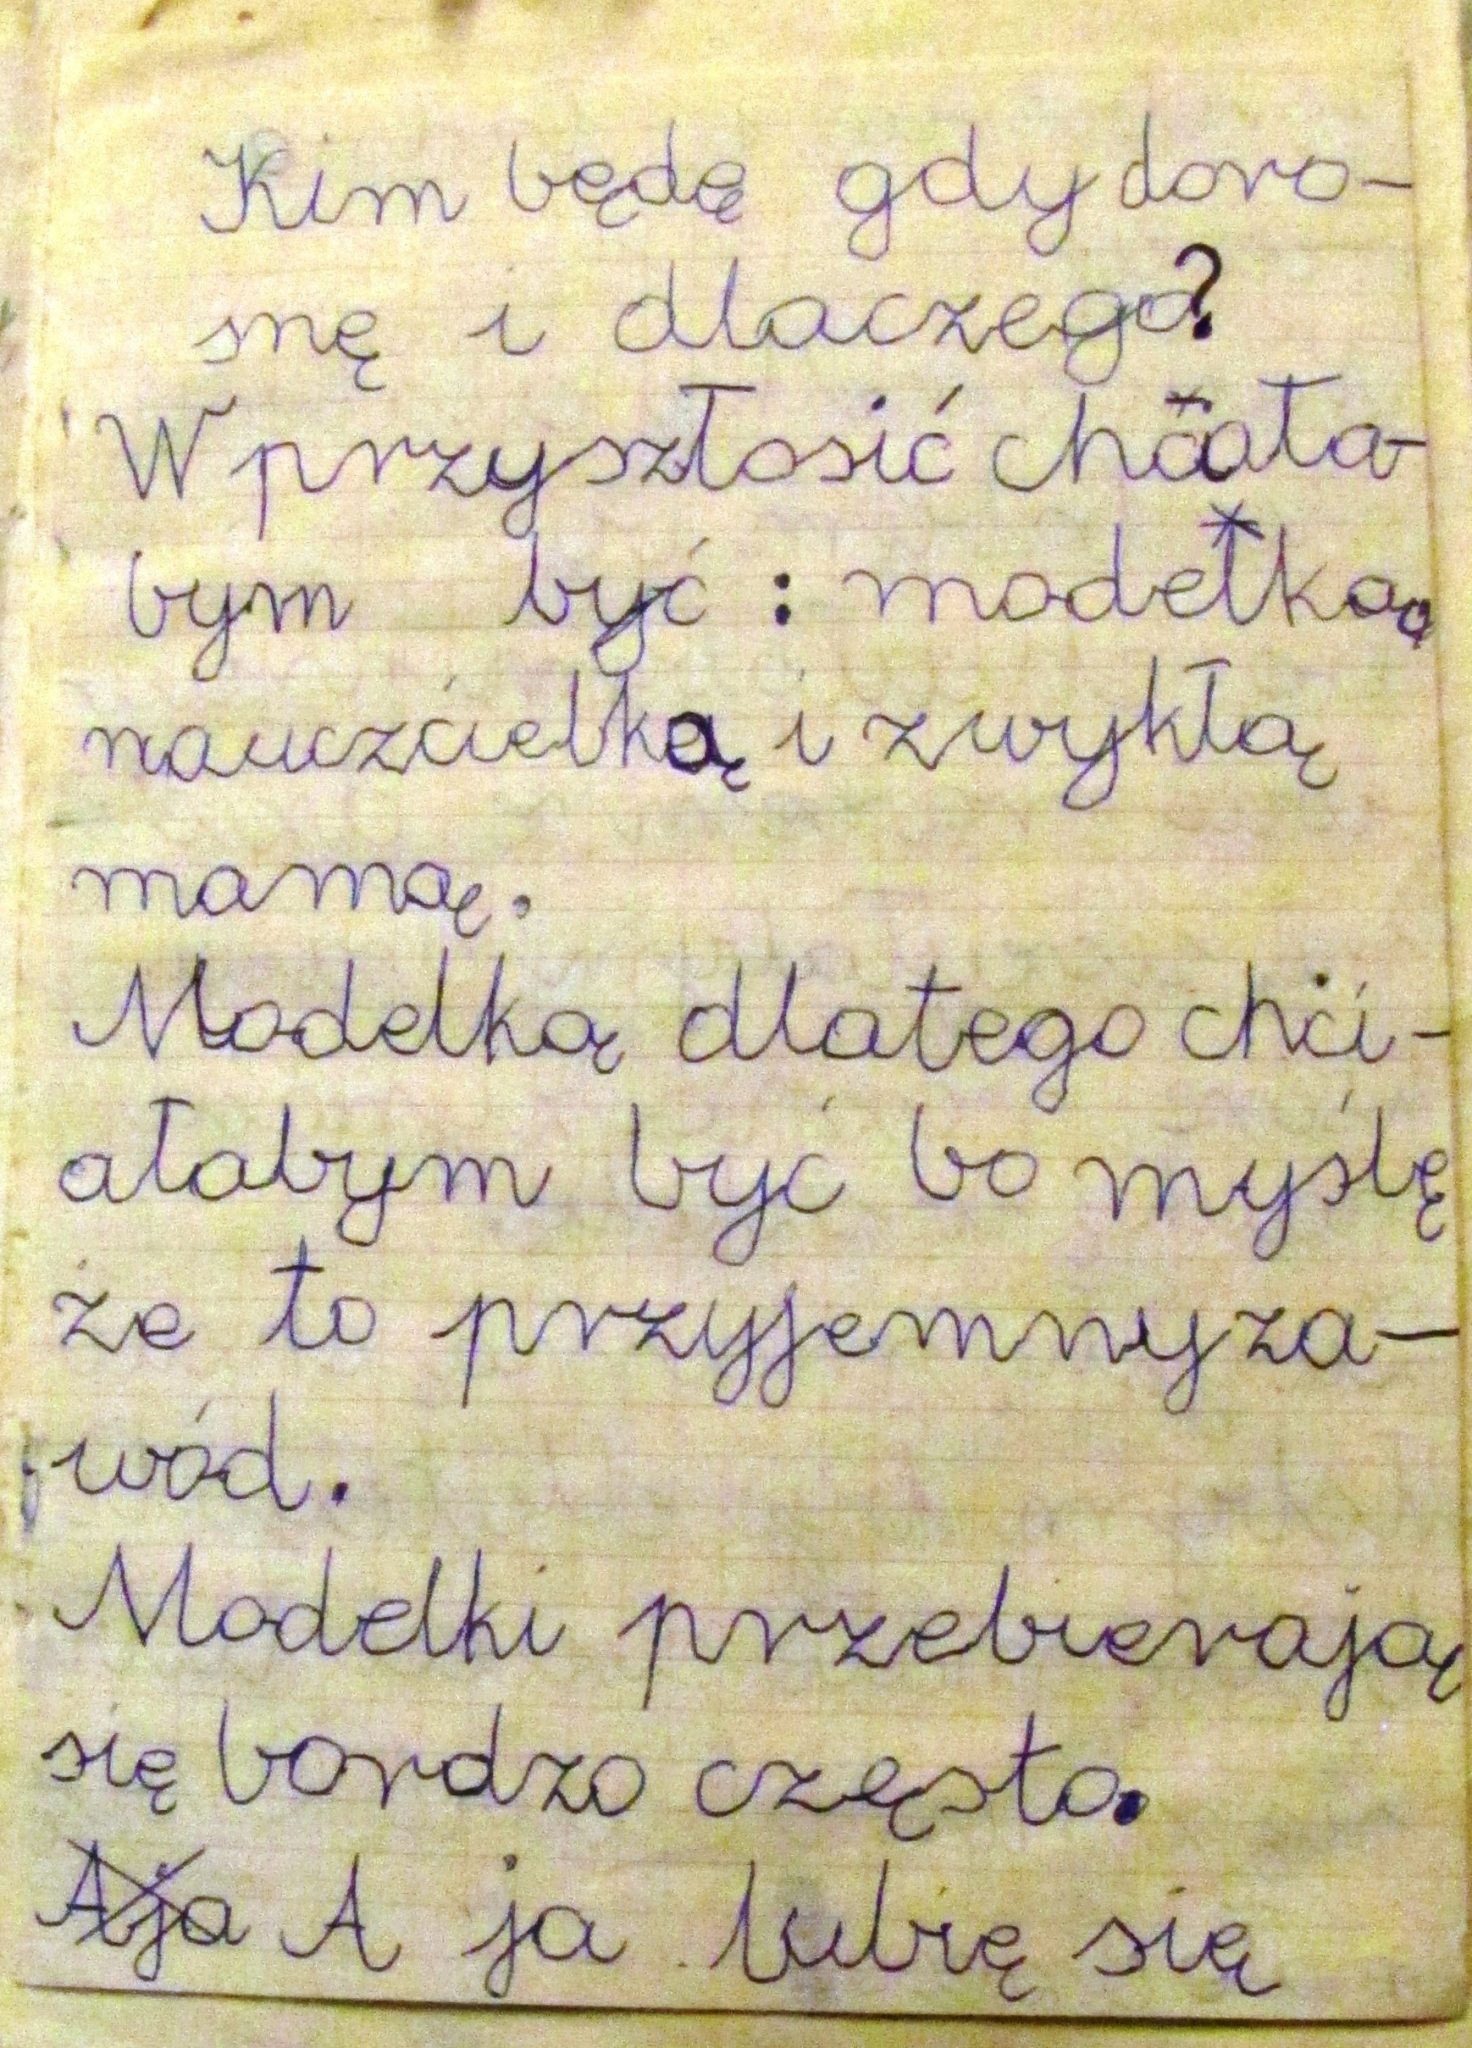 Kim będę gdy doro-
snę i dlaczego?
W przyszłosić chciała-
bym być : modelką,
nauczćielką i zwykłą
mamą.
Modelką dlatego chći-
ałabym być bo myślę
że to przyjemny za-
wód.
Modelki przebierają
się bardzo często.
A ja A ja lubię się